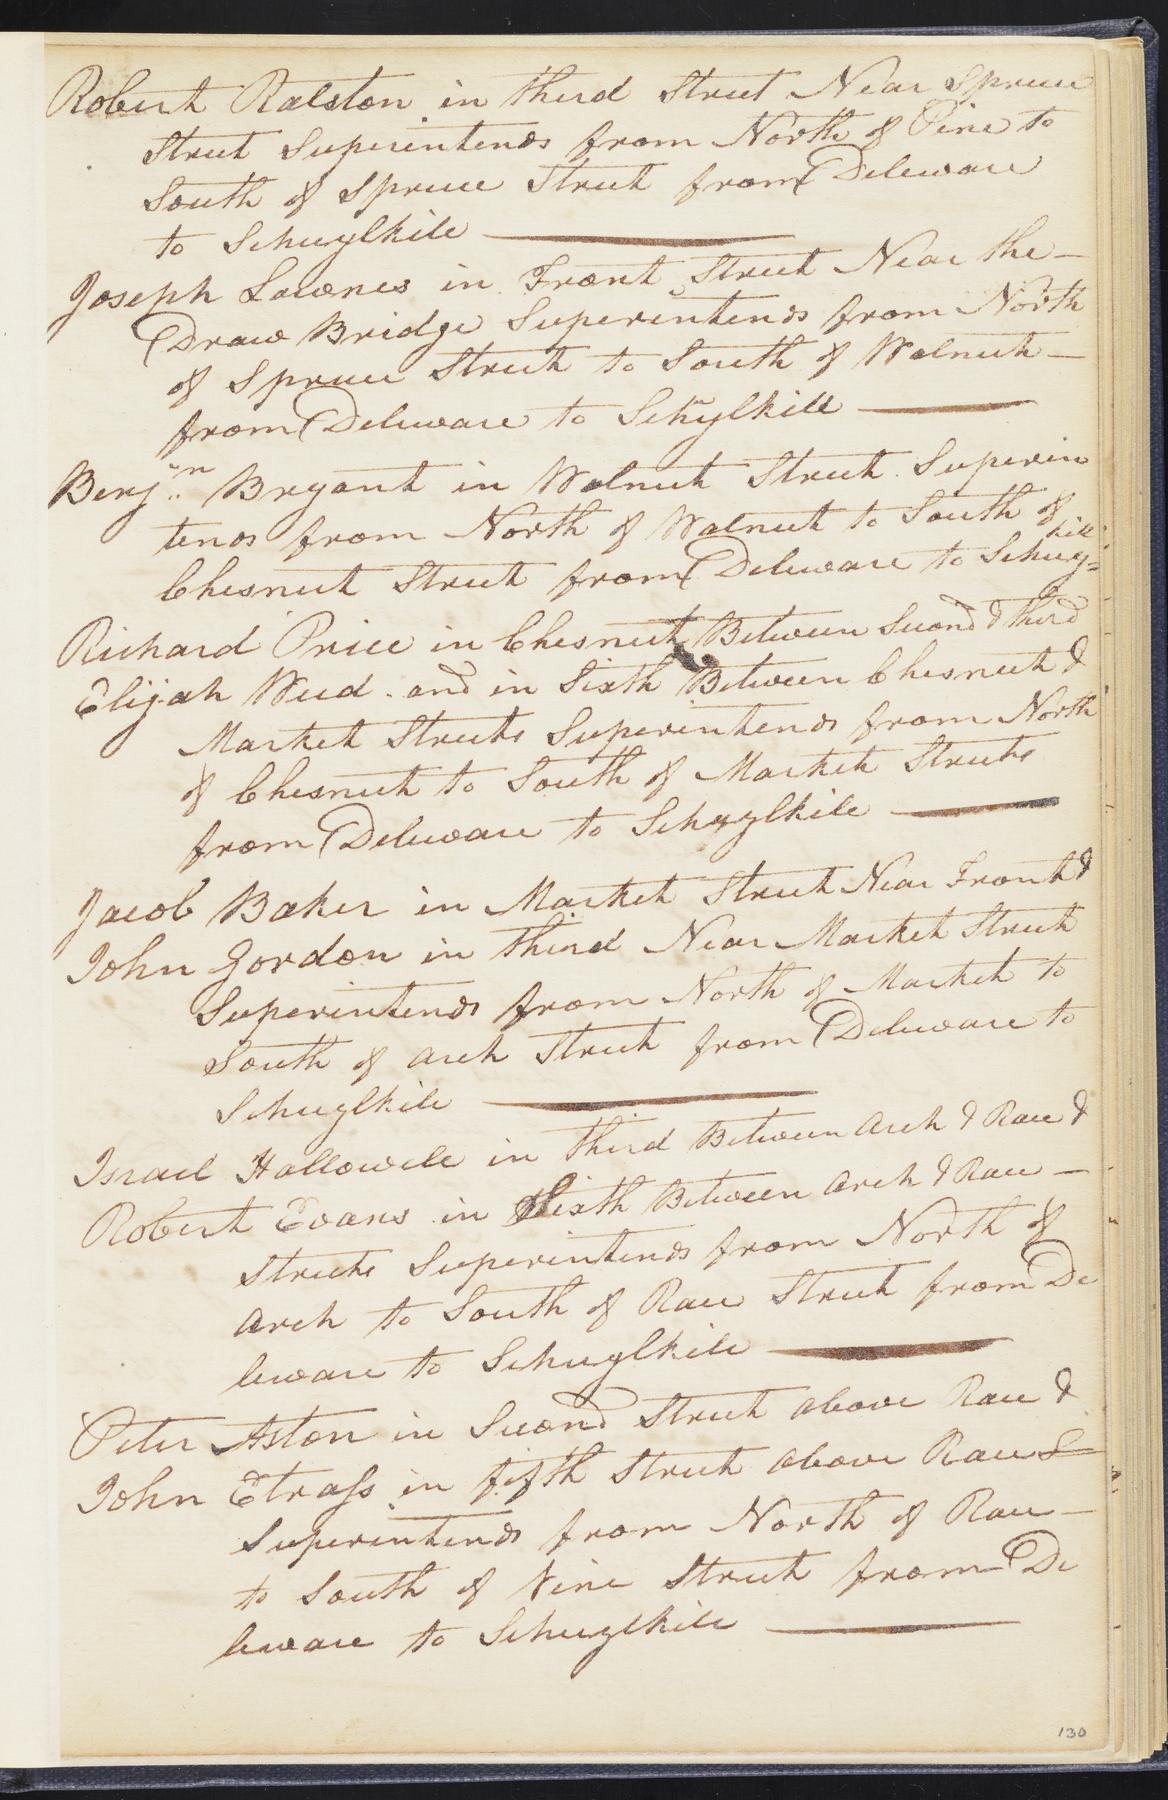 Robert Ralston in third Street Near Spruce
Street Superintends from North of Pine to
South of Spruce Street from Deleware
to Schuylkill
Joseph Lownes in Front Street Near the
Draw Bridge Superintends from North
of Spruce Street to South of Walnut
from Deleware to Schylkill
Benjn. Bryant in Walnut Street Superin
tends from North of Walnut to South of
Chesnut Street from Deleware to Schuy=kill
Richard Price in Chesnut Between Second & third
Elijah Weed and in Sixth Between Chesnut &
Market Streets Superintends from North
of Chesnut to South of Market Streets
from Deleware to Schuylkill
Jacob Baker in Market Street Near Front &
John Gordon in third Near Market Street
Superintends from North of Market to
South of Arch Street from Deleware to
Schuylkill
Israel Hallowell in third Between Arch & Race &
Robert Evans in Sixth Between Arch & Race
Streets Superintends from North of
Arch to South of Race Street from De
leware to Schuylkill
Peter Aston in Second Street above Race &
John Etrass in fifth Street above Race S
Superintends from North of Race
to South of Vine Street from De
leware to Schuylkill
130